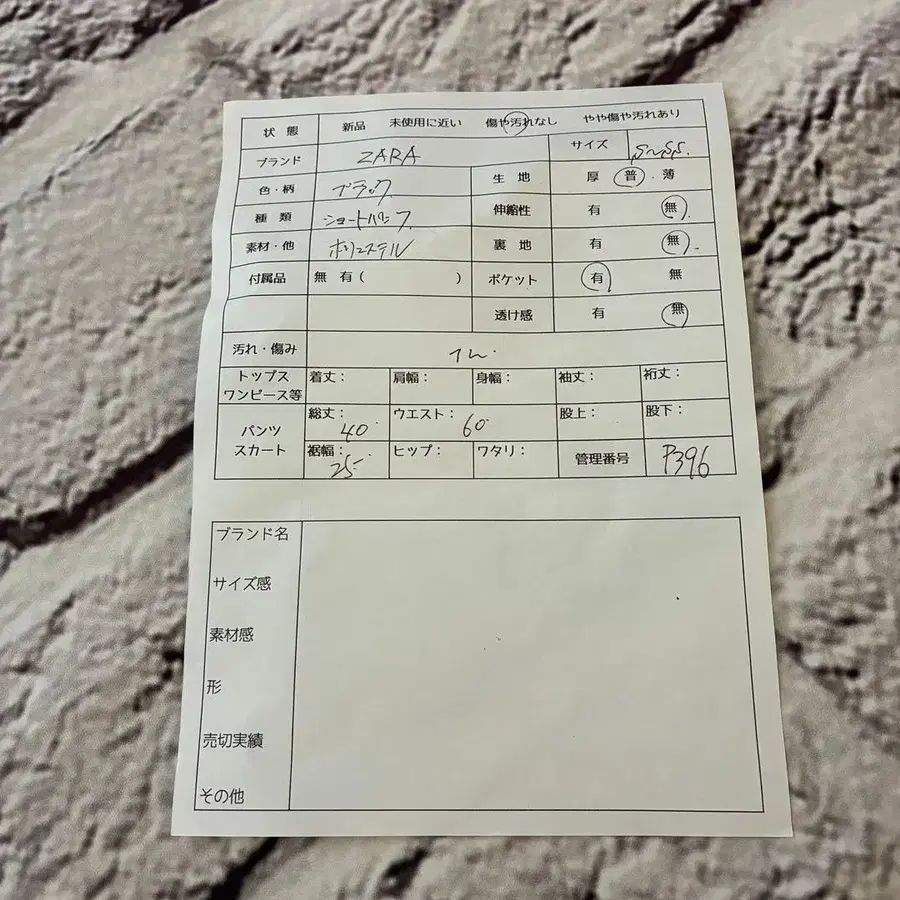 状態 新品 未使用に近い 傷や汚れなし やや傷や汚れあり
ブランド ZARA サイズ S~SS.
色・柄 ブラック 生地 厚 普 . 薄
種類 ショートパンツ 伸縮性 有 無
素材・他 ポリエステル 裏地 有 無
付属品 無 有 ( ) ポケット 有 無
透け感 有 無
汚れ・傷み
トップス 着丈: 肩幅: 身幅: 袖丈: 裄丈:
ワンピース等
パンツ 総丈: 40 ウエスト: 60 股上: 股下:
スカート 裾幅: 25 ヒップ: ワタリ: 管理番号 P396
ブランド名
サイズ感
素材感
形
売切実績
その他